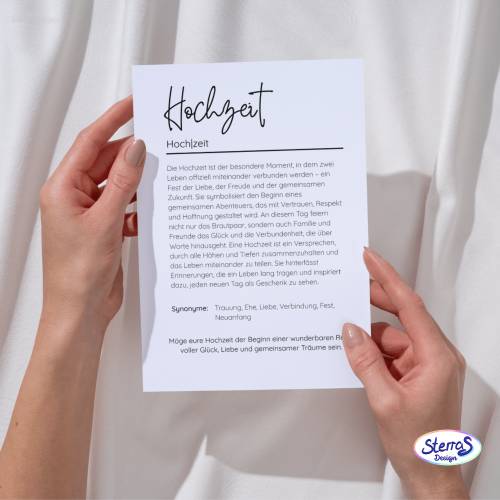 Hochzeit
Hoch|zeit
Die Hochzeit ist der besondere Moment, in dem zwei
Leben offiziell miteinander verbunden werden – ein
Fest der Liebe, der Freude und der gemeinsamen
Zukunft. Sie symbolisiert den Beginn eines
gemeinsamen Abenteuers, das mit Vertrauen, Respekt
und Hoffnung gestaltet wird. An diesem Tag feiern
nicht nur das Brautpaar, sondern auch Familie und
Freunde das Glück und die Verbundenheit, die über
Worte hinausgeht. Eine Hochzeit ist ein Versprechen,
durch alle Höhen und Tiefen zusammenzuhalten und
das Leben miteinander zu teilen. Sie hinterlässt
Erinnerungen, die ein Leben lang tragen und inspiriert
dazu, jeden neuen Tag als Geschenk zu sehen.
Synonyme: Trauung, Ehe, Liebe, Verbindung, Fest,
Neuanfang
Möge eure Hochzeit der Beginn einer wunderbaren
voller Glück, Liebe und gemeinsamer Träume sein.
SterraS
Design